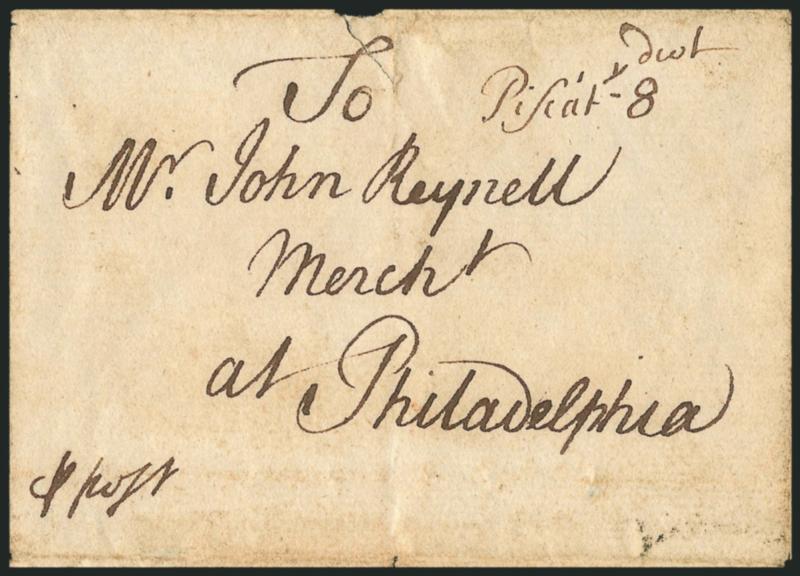 To
Piscat.y dwt
8
Mr. John Reynell
Mercht
at Philadelphia
⅌ post